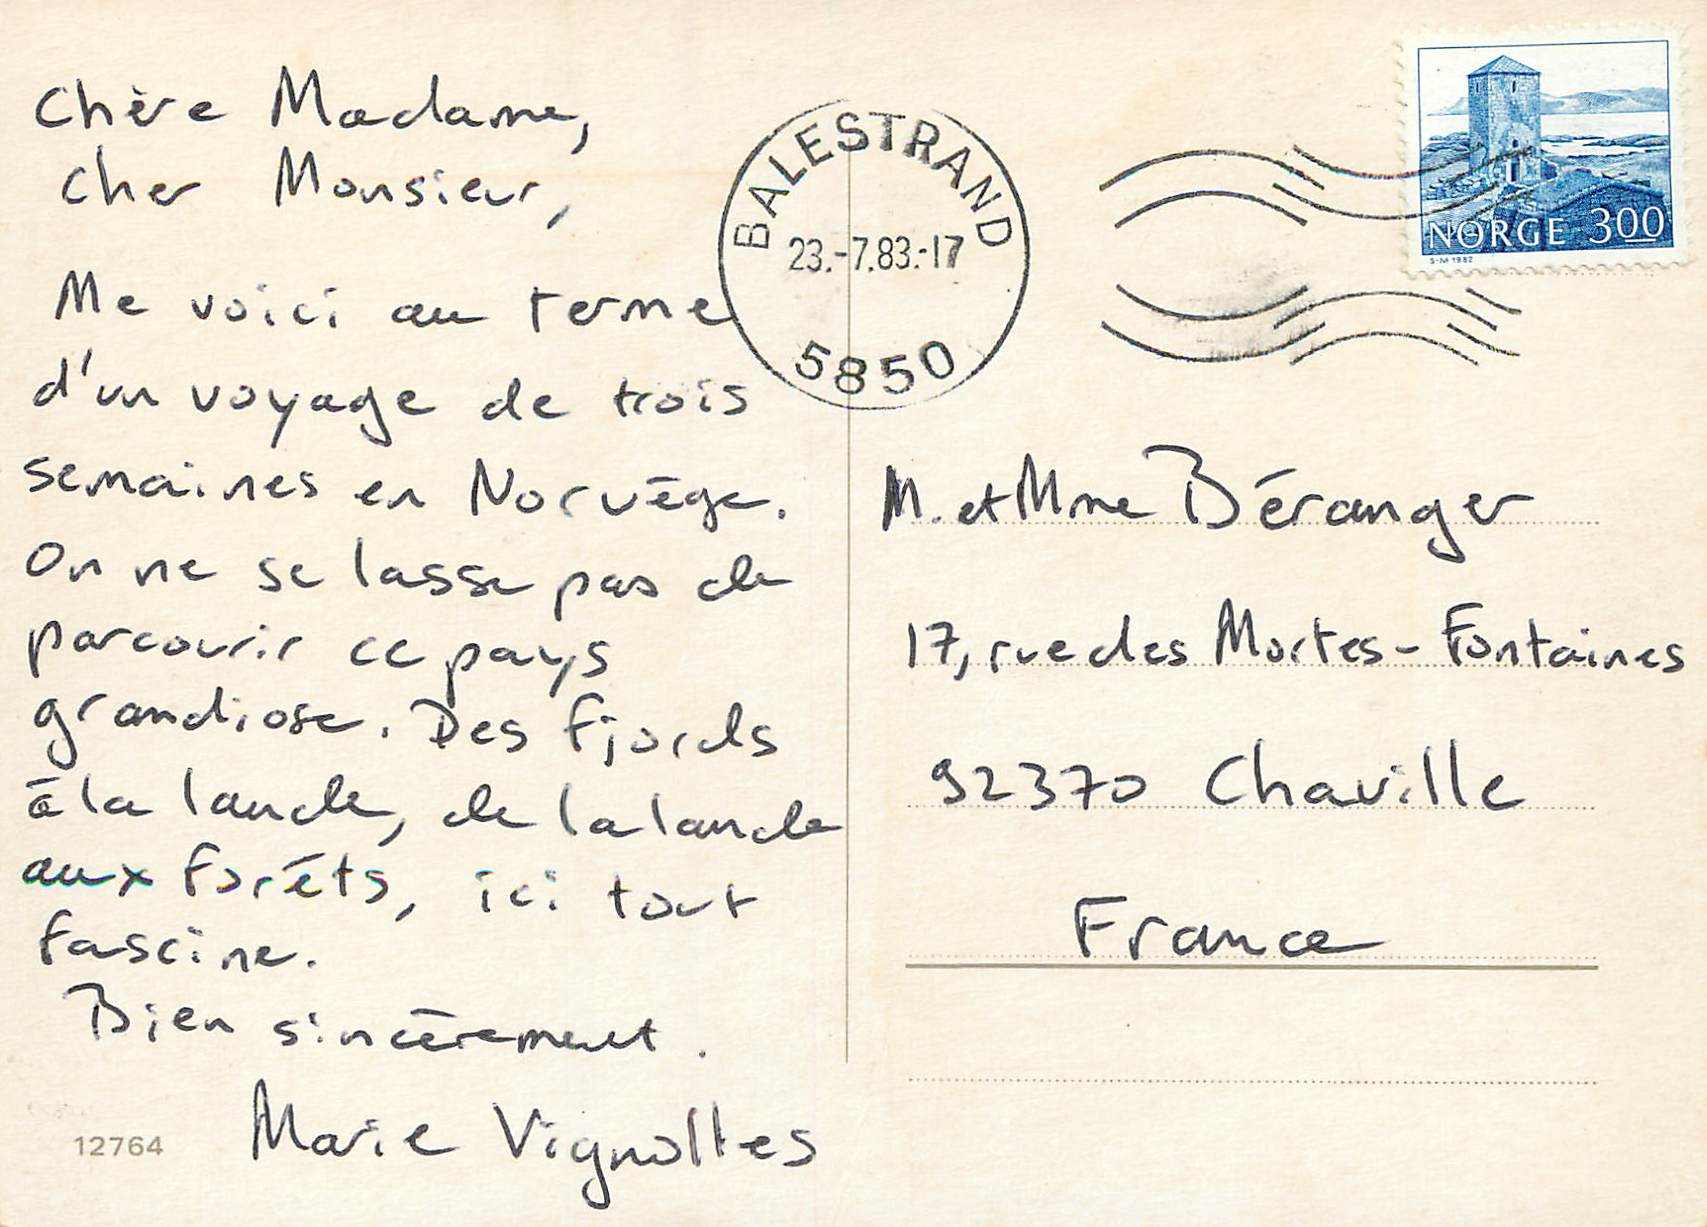 Chère Madame,
Cher Monsieur,
Me voici au terme
d'un voyage de trois
semaines en Norvège.
On ne se lasse pas de
parcourir ce pays
grandiose. Des fjords
à la lande, de la lande
aux forêts, ici tout
fascine.
Bien sincèrement.
Marie Vignolles
12764
BALESTRAND
23.-7.83.-17
5850
NORGE 300
S-M 1982
M. et Mme Béranger
17, rue des Mortes-Fontaines
92370 Chaville
France